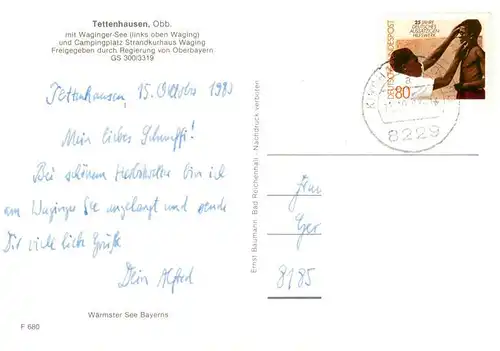 Tettenhausen, Obb.
mit Waginger-See (links oben Waging)
und Campingplatz Strandkurhaus Waging
Freigegeben durch Regierung von Oberbayern
GS 300/3319
Tettenhausen, 15. Oktober
Mein liebes Schnuffi!
Bei schönem Herbstwetter bin ich
am Waginger See angelangt und sende
Dir viele liebe Grüße
Dein Alfred
Wärmster See Bayerns
F 680
Ernst Baumann, Bad Reichenhall - Nachdruck verboten
DEUTSCHE BUNDESPOST
25 JAHRE
DEUTSCHES
AUSSÄTZIGEN
HILFSWERK
80
8229
Frau
8185